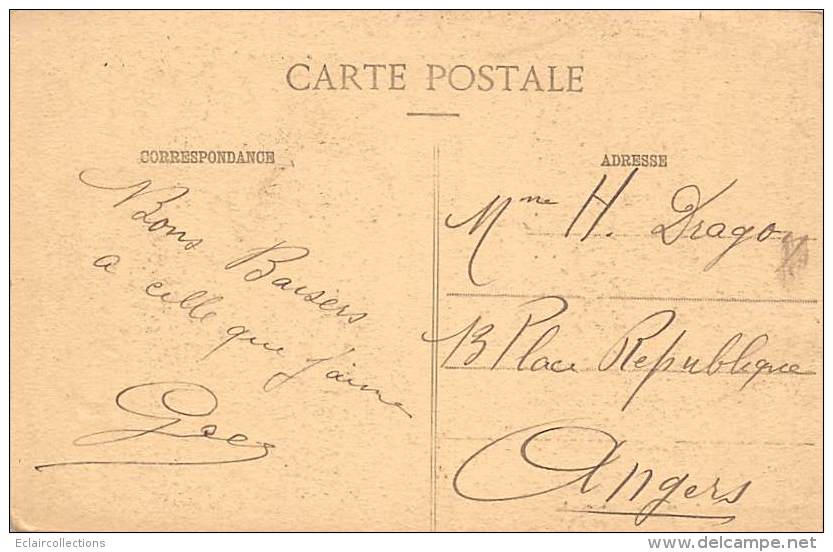 CARTE POSTALE
CORRESPONDANCE
Bons Baisers
a celle que j'aime
ADRESSE
Mme H. Drago
13 Place Republique
Angers
Eclaircollections
delcampe.net